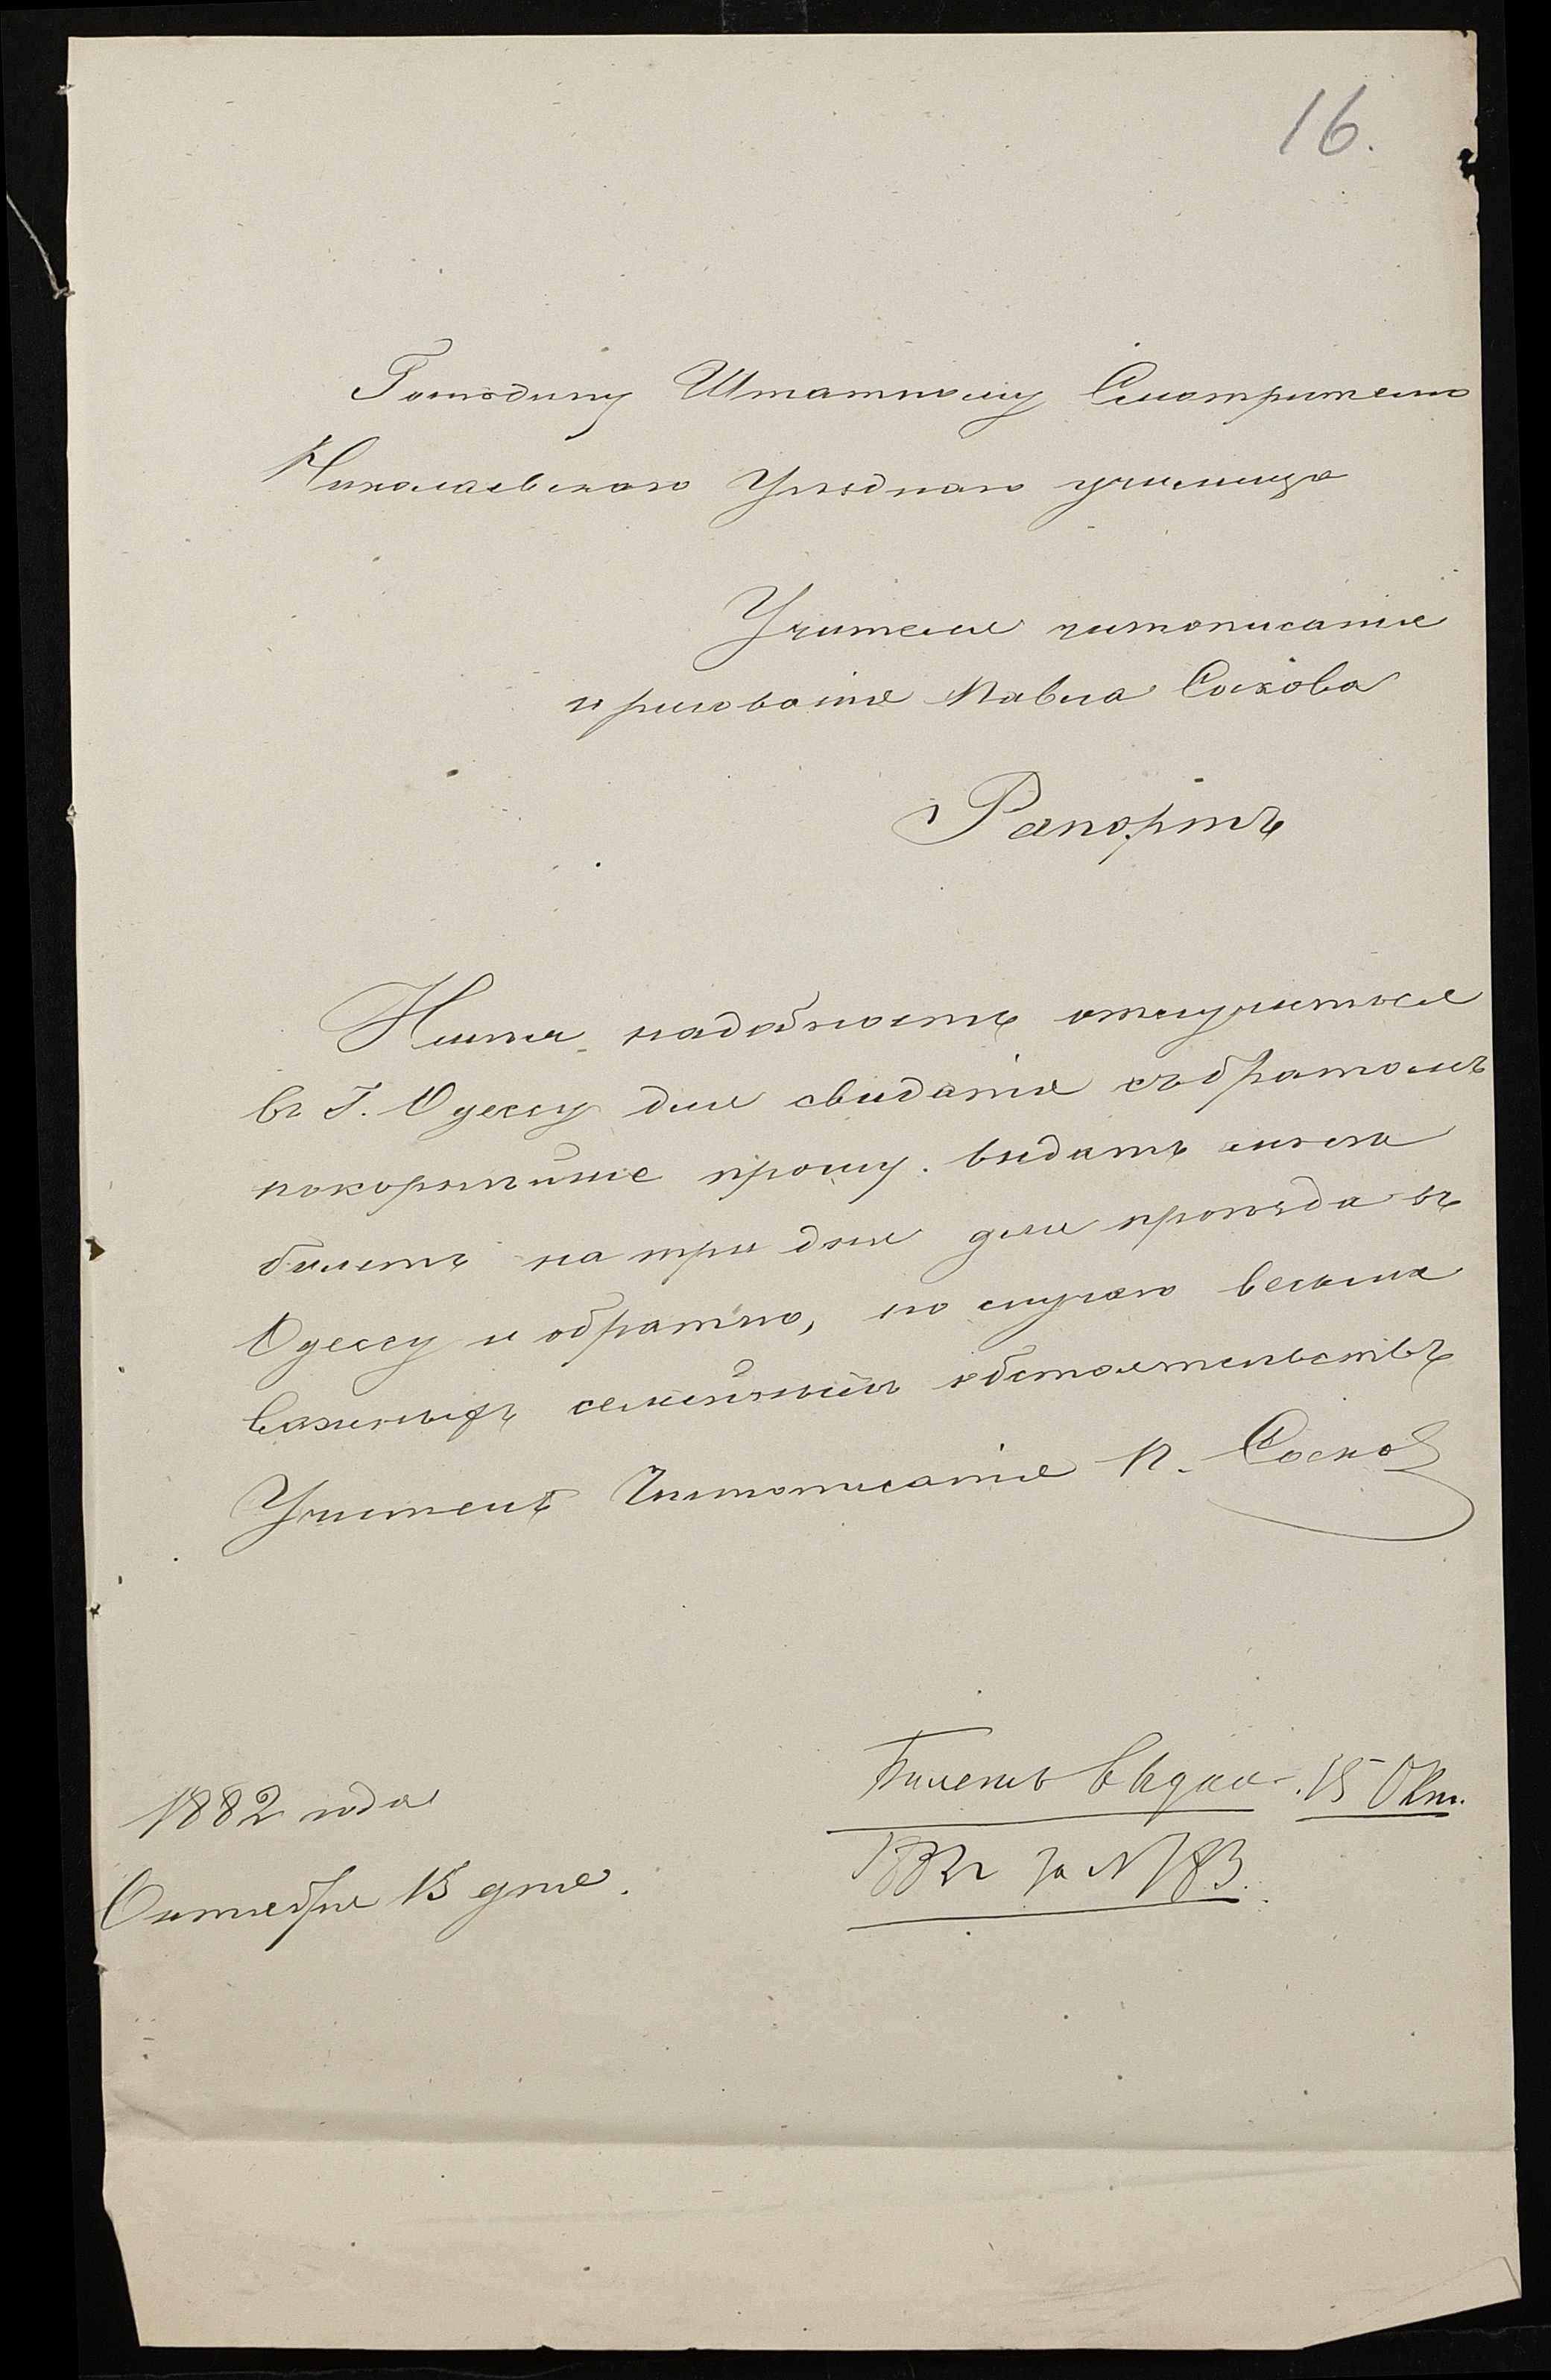 16.
Господину Штатному Смотрителю
Николаевскаго Уѣзднаго училища
Учителя чистописанія
и рисованія Павла Соскова
Рапортъ
Имѣя надобность отлучиться
въ Г. Одессу для свиданія съ братомъ
покорнѣйше прошу выдать мнѣ
билетъ на три дня для проѣзда въ
Одессу и обратно, по случаю весьма
важныхъ семейныхъ обстоятельствъ
Учитель Чистописанія П. Сосковъ
1882 года
Октября 15 дня.
Билетъ выданъ 15 Окт.
1882 г за № 183.